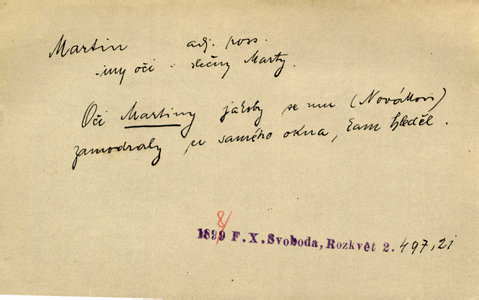 Martin adj. poss.
-iny oči : slečny Marty.
Oči Martiny jakoby se mu (Novákovi)
zamodraly, u samého okna, kam hleděl.
1898 F. X. Svoboda, Rozkvět 2. 497, 21